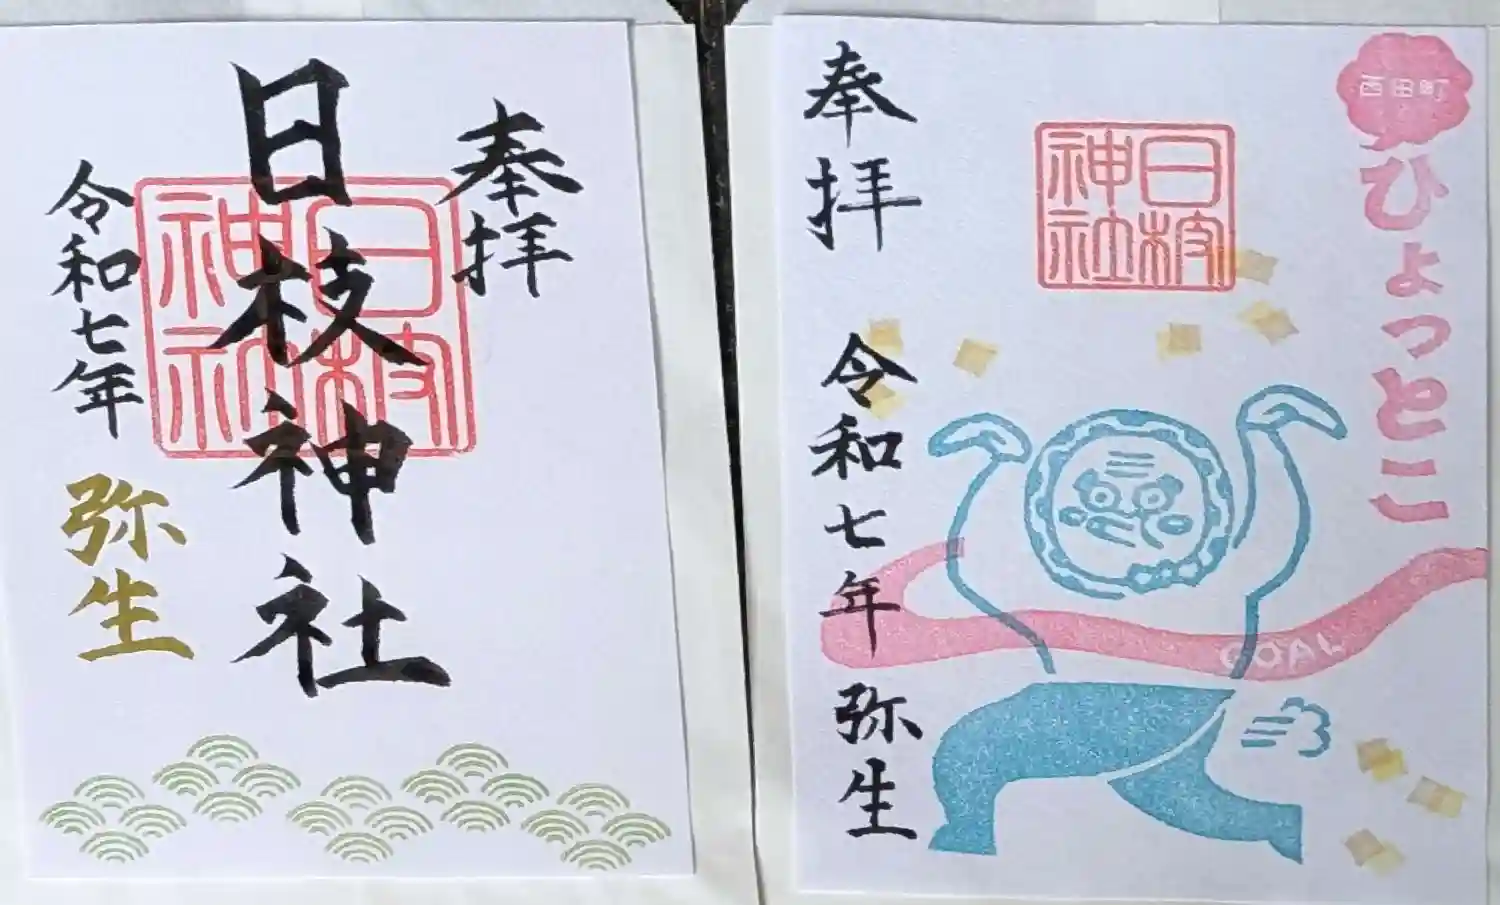 奉拝
日枝神社
日枝神社
令和七年
弥生
西田町
ひょっとこ
日枝神社
奉拝
令和七年
弥生
GOAL